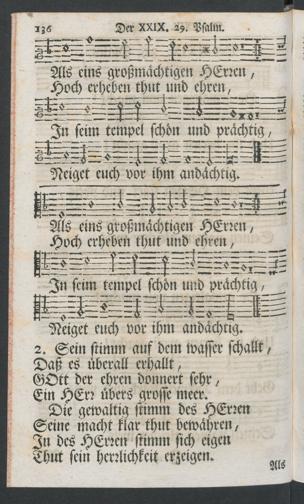 136 Der XXIX. 29. Psalm.
Als eins großmächtigen HErren,
Hoch erheben thut und ehren,
In seim tempel schön und prächtig,
Neiget euch vor ihm andächtig.
Als eins großmächtigen HErren,
Hoch erheben thut und ehren,
In seim tempel schön und prächtig,
Neiget euch vor ihm andächtig.
2. Sein stimm auf dem wasser schallt,
Daß es überall erhallt,
GOtt der ehren donnert sehr,
Ein HErr übers grosse meer.
Die gewaltig stimm des HErren
Seine macht klar thut bewähren,
In des HErren stimm sich eigen
Thut sein herrlichkeit erzeigen.
Als